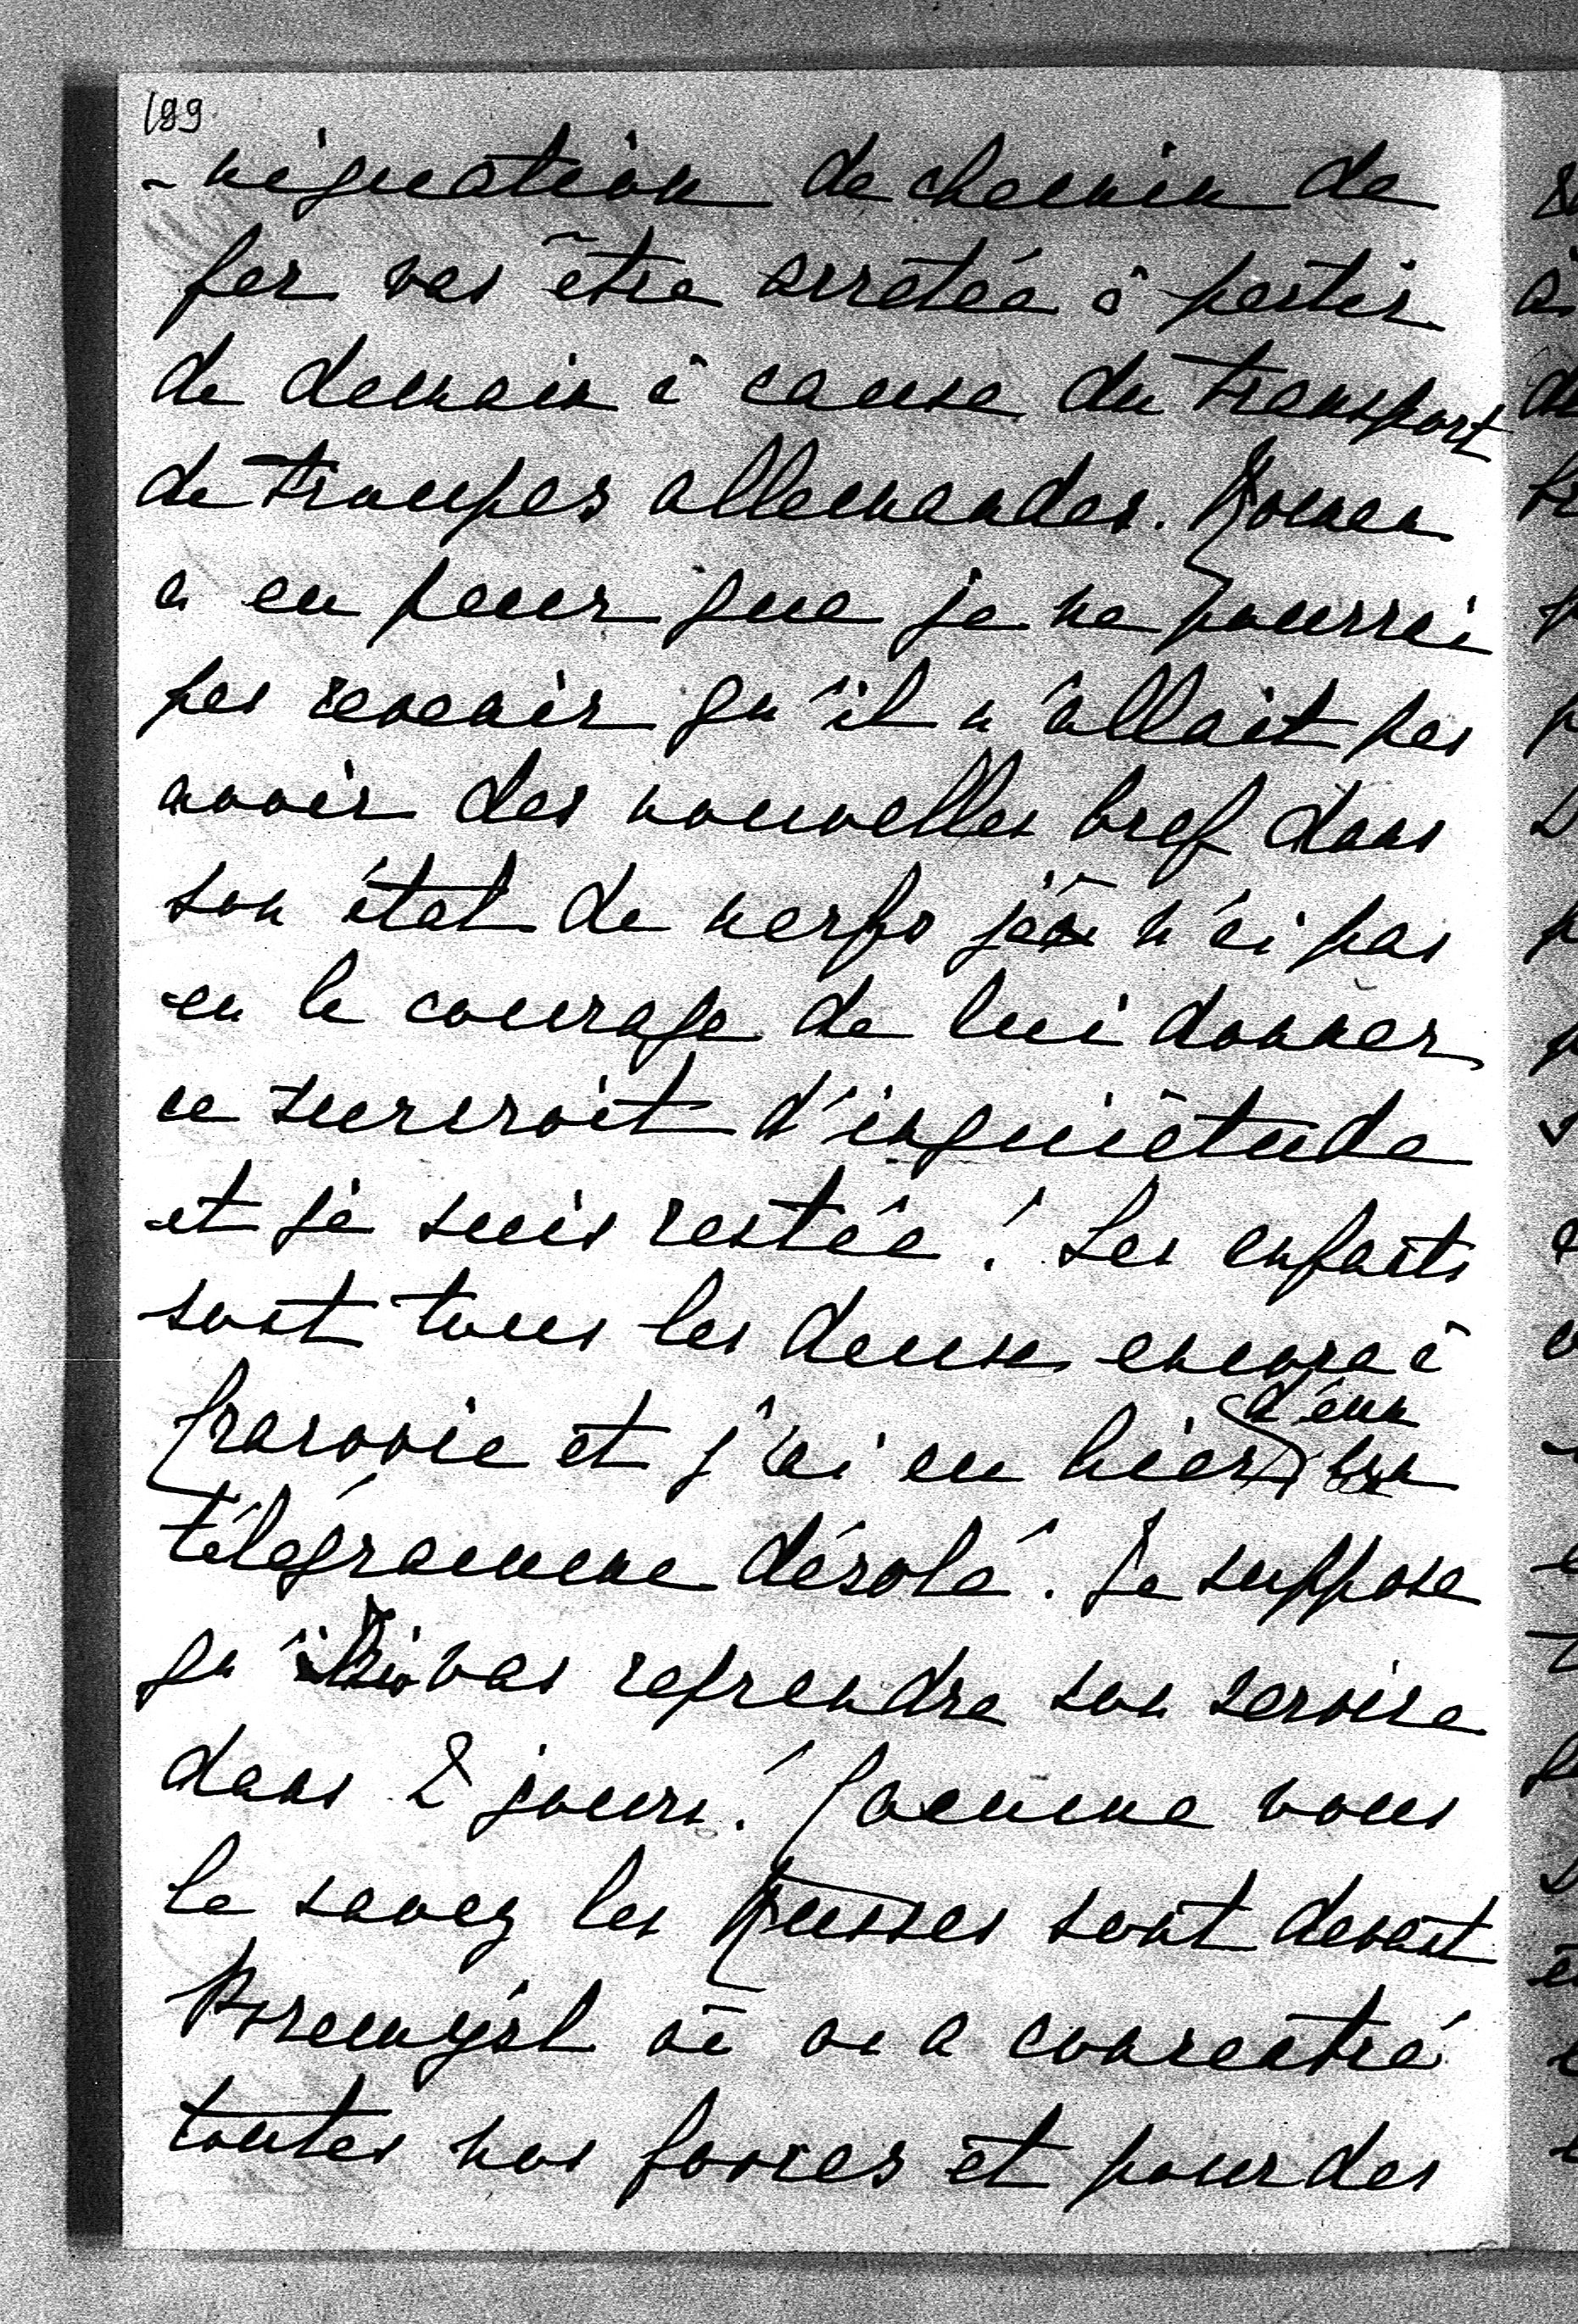 199
-nication de chemin de
fer vas être arretée à partir
de demain à cause du transport
de troupes allemandes. Roman
a eu peur que je ne pourrai
pas revenir qu'il n'allait pas
avoir des nouvelles bref dans
son état de nerfs je n'ai pas
eu le courage de lui donner
ce surcroit d'inquiètude
et je suis restée! Les enfants
sont tous les deux encore à
Cracovie et j'ai eu hier d'eux un
télégramme désolé. Je suppose
qu' vas reprendre son service
dans 2 jours! Comme vous
le savez les Russes sont devant
Przemyśl où on a concentré
toutes nos forces et pour des